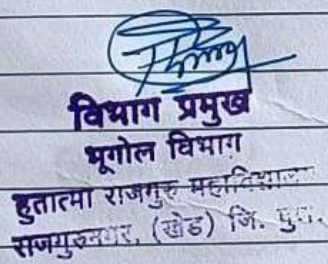 विभाग प्रमुख
भूगोल विभाग
हुतात्मा राजगुरु महाविद्यालय
राजगुरुनगर, (खेड) जि. पुणे.